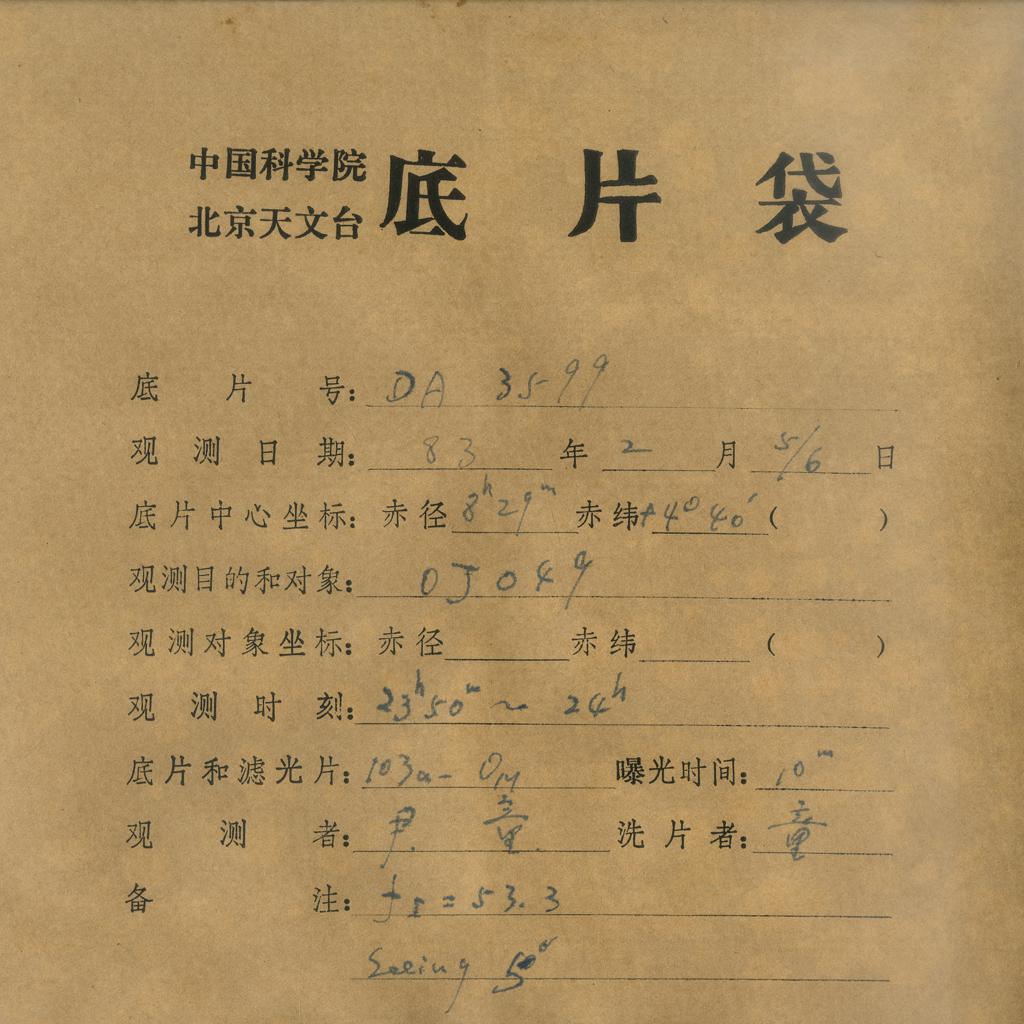 中国科学院
北京天文台
底片袋
底片号: DA 3599
观测日期: 83 年 2 月 5/6 日
底片中心坐标: 赤径 8h 29m 赤纬 +4° 40′ ( )
观测目的和对象: OJ 049
观测对象坐标: 赤径 赤纬 ( )
观测时刻: 23h50m ~ 24h
底片和滤光片: 103a-O 曝光时间: 10m
观测者: 尹. 童. 洗片者: 童
备注: = 53.3
Seeing 5″